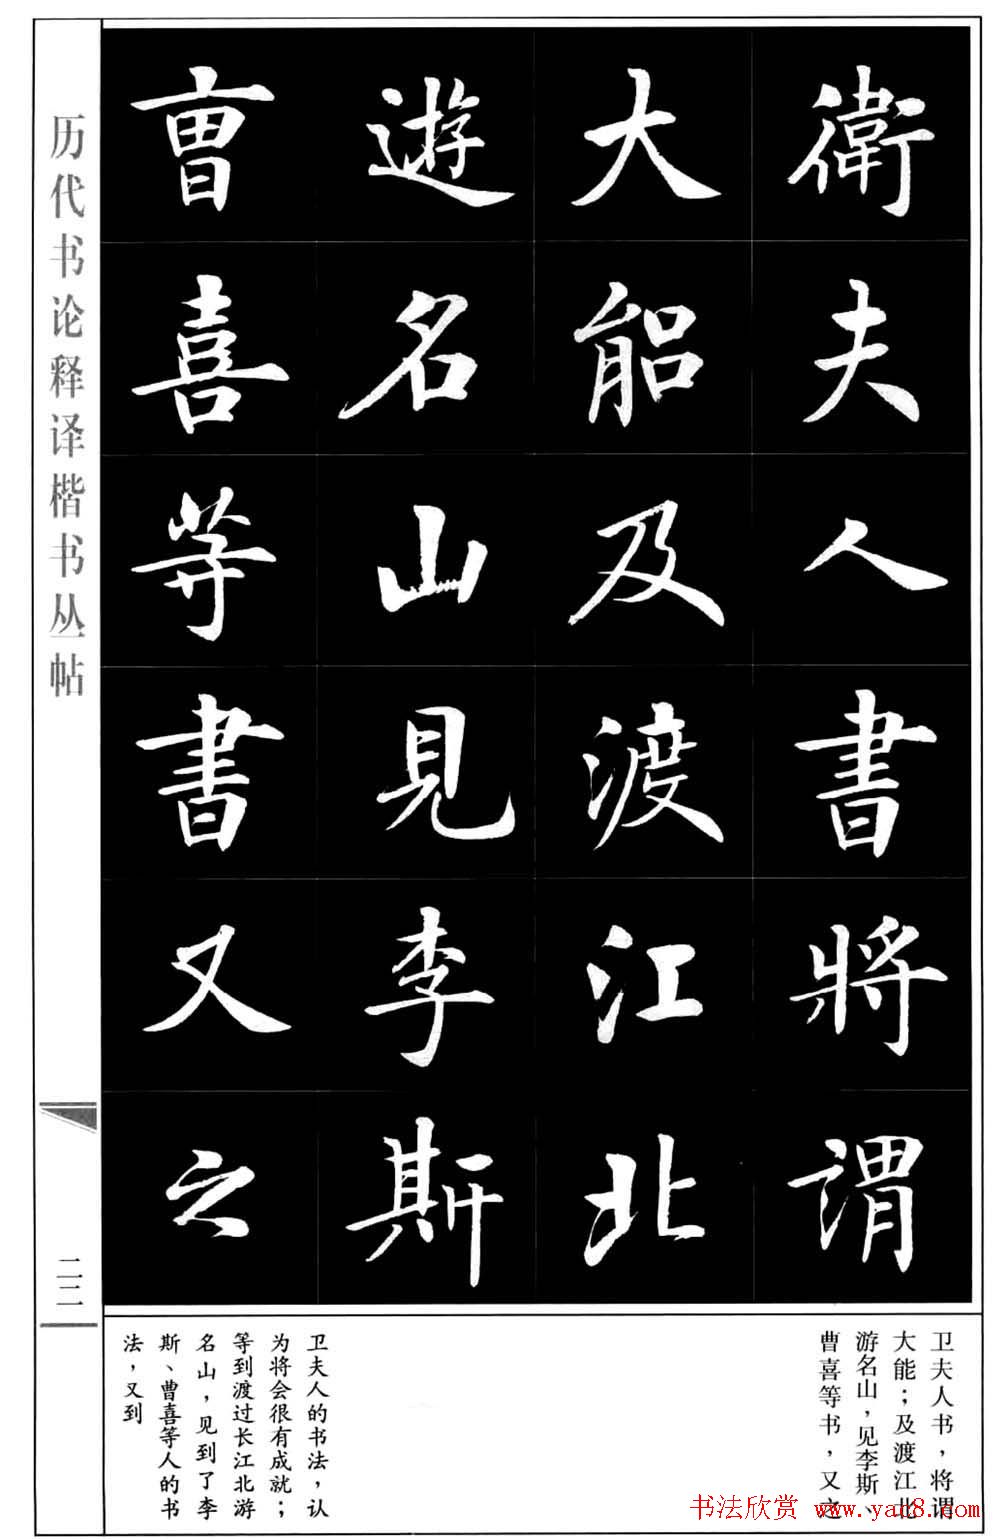 衛夫人書將謂
大能及渡江北
遊名山見李斯
曹喜等書又之
历代书论释译楷书丛帖
二二
卫夫人书，将谓
大能；及渡江北
游名山，见李斯、
曹喜等书，又之
卫夫人的书法，认
为将会很有成就；
等到渡过长江北游
名山，见到了李
斯、曹喜等人的书
法，又到
书法欣赏 www.yac8.com